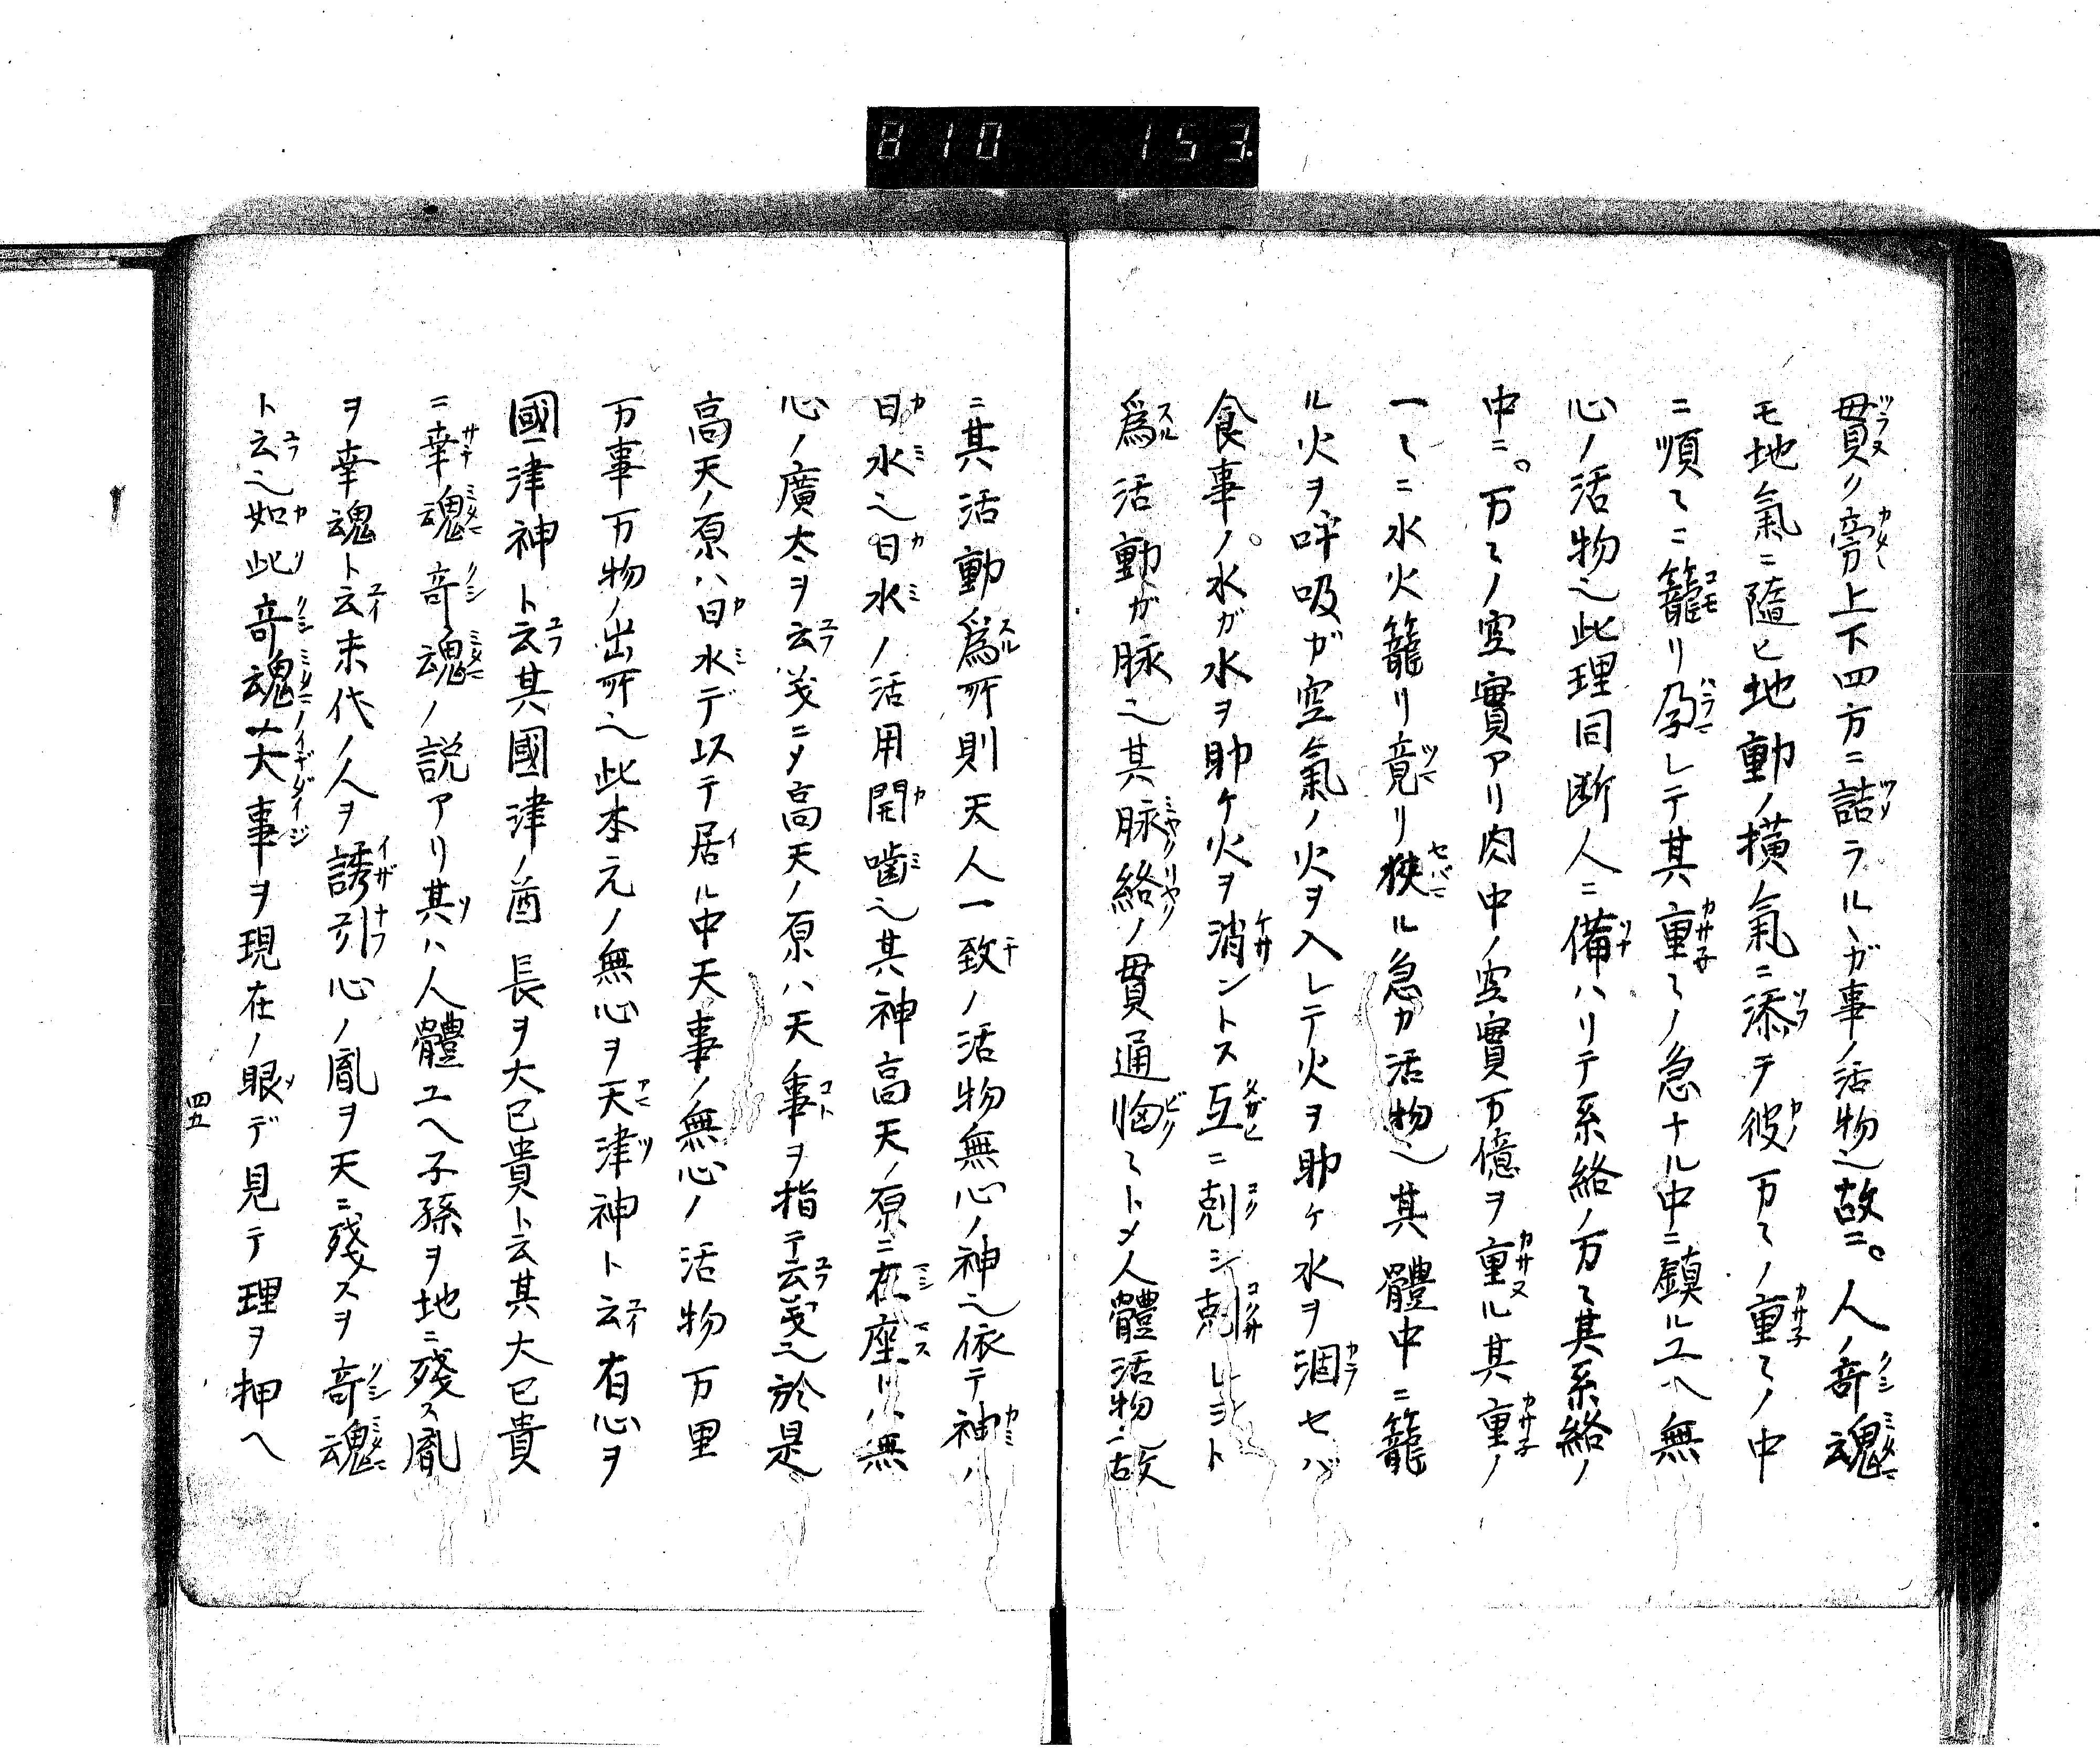 810 153.
貫ク旁上下四方ニ詰ラルヽガ事ノ活物也故ニ。人ノ奇魂
モ地氣ニ隨ヒ地動ノ横氣ニ添テ彼万〻ノ重〻ノ中
ニ順〻ニ籠リ孕レテ其重〻ノ急ナル中ニ鎮ルユヘ無
心ノ活物也此理同断人ニ備ハリテ系絡ノ万〻其系絡ノ
中ニ。万〻ノ空實アリ肉中ノ空實万億ヲ重ル其重ノ
一〻ニ水火籠リ竟リ狹ル急カ活物也其體中ニ籠
ル火ヲ呼吸ガ空氣ノ火ヲ入レテ火ヲ助ケ水ヲ涸セバ
食事ノ。水ガ水ヲ助ケ火ヲ消ントス互ニ剋シ剋レミト
爲活動ガ脉也其脉絡ノ貫通 〻トメ人體活物ニ故
ニ其活動爲所則天人一致ノ活物無心ノ神也依テ神ハ
日水也日水ノ活用開嚙也其神高天ノ原ニ在座ハ無
心ノ廣太ヲ云義ニメ高天ノ原ハ天ノ事ヲ指テ云義也於是
高天ノ原ハ日水デ以テ居ル中天事ノ無心ノ活物万里
万事万物ノ出所也此本元ノ無心ヲ天津神ト云有心ヲ
國津神ト云其國津ノ酋長ヲ大已貴ト云其大已貴
ニ幸魂奇魂ノ説アリ其ハ人體ユヘ子孫ヲ地ニ殘ス胤
ヲ幸魂ト云末代ノ人ヲ誘引心ノ胤ヲ天ニ殘スヲ奇魂
ト云也如此奇魂 大事ヲ現在ノ眼デ見テ理ヲ押ヘ
四五